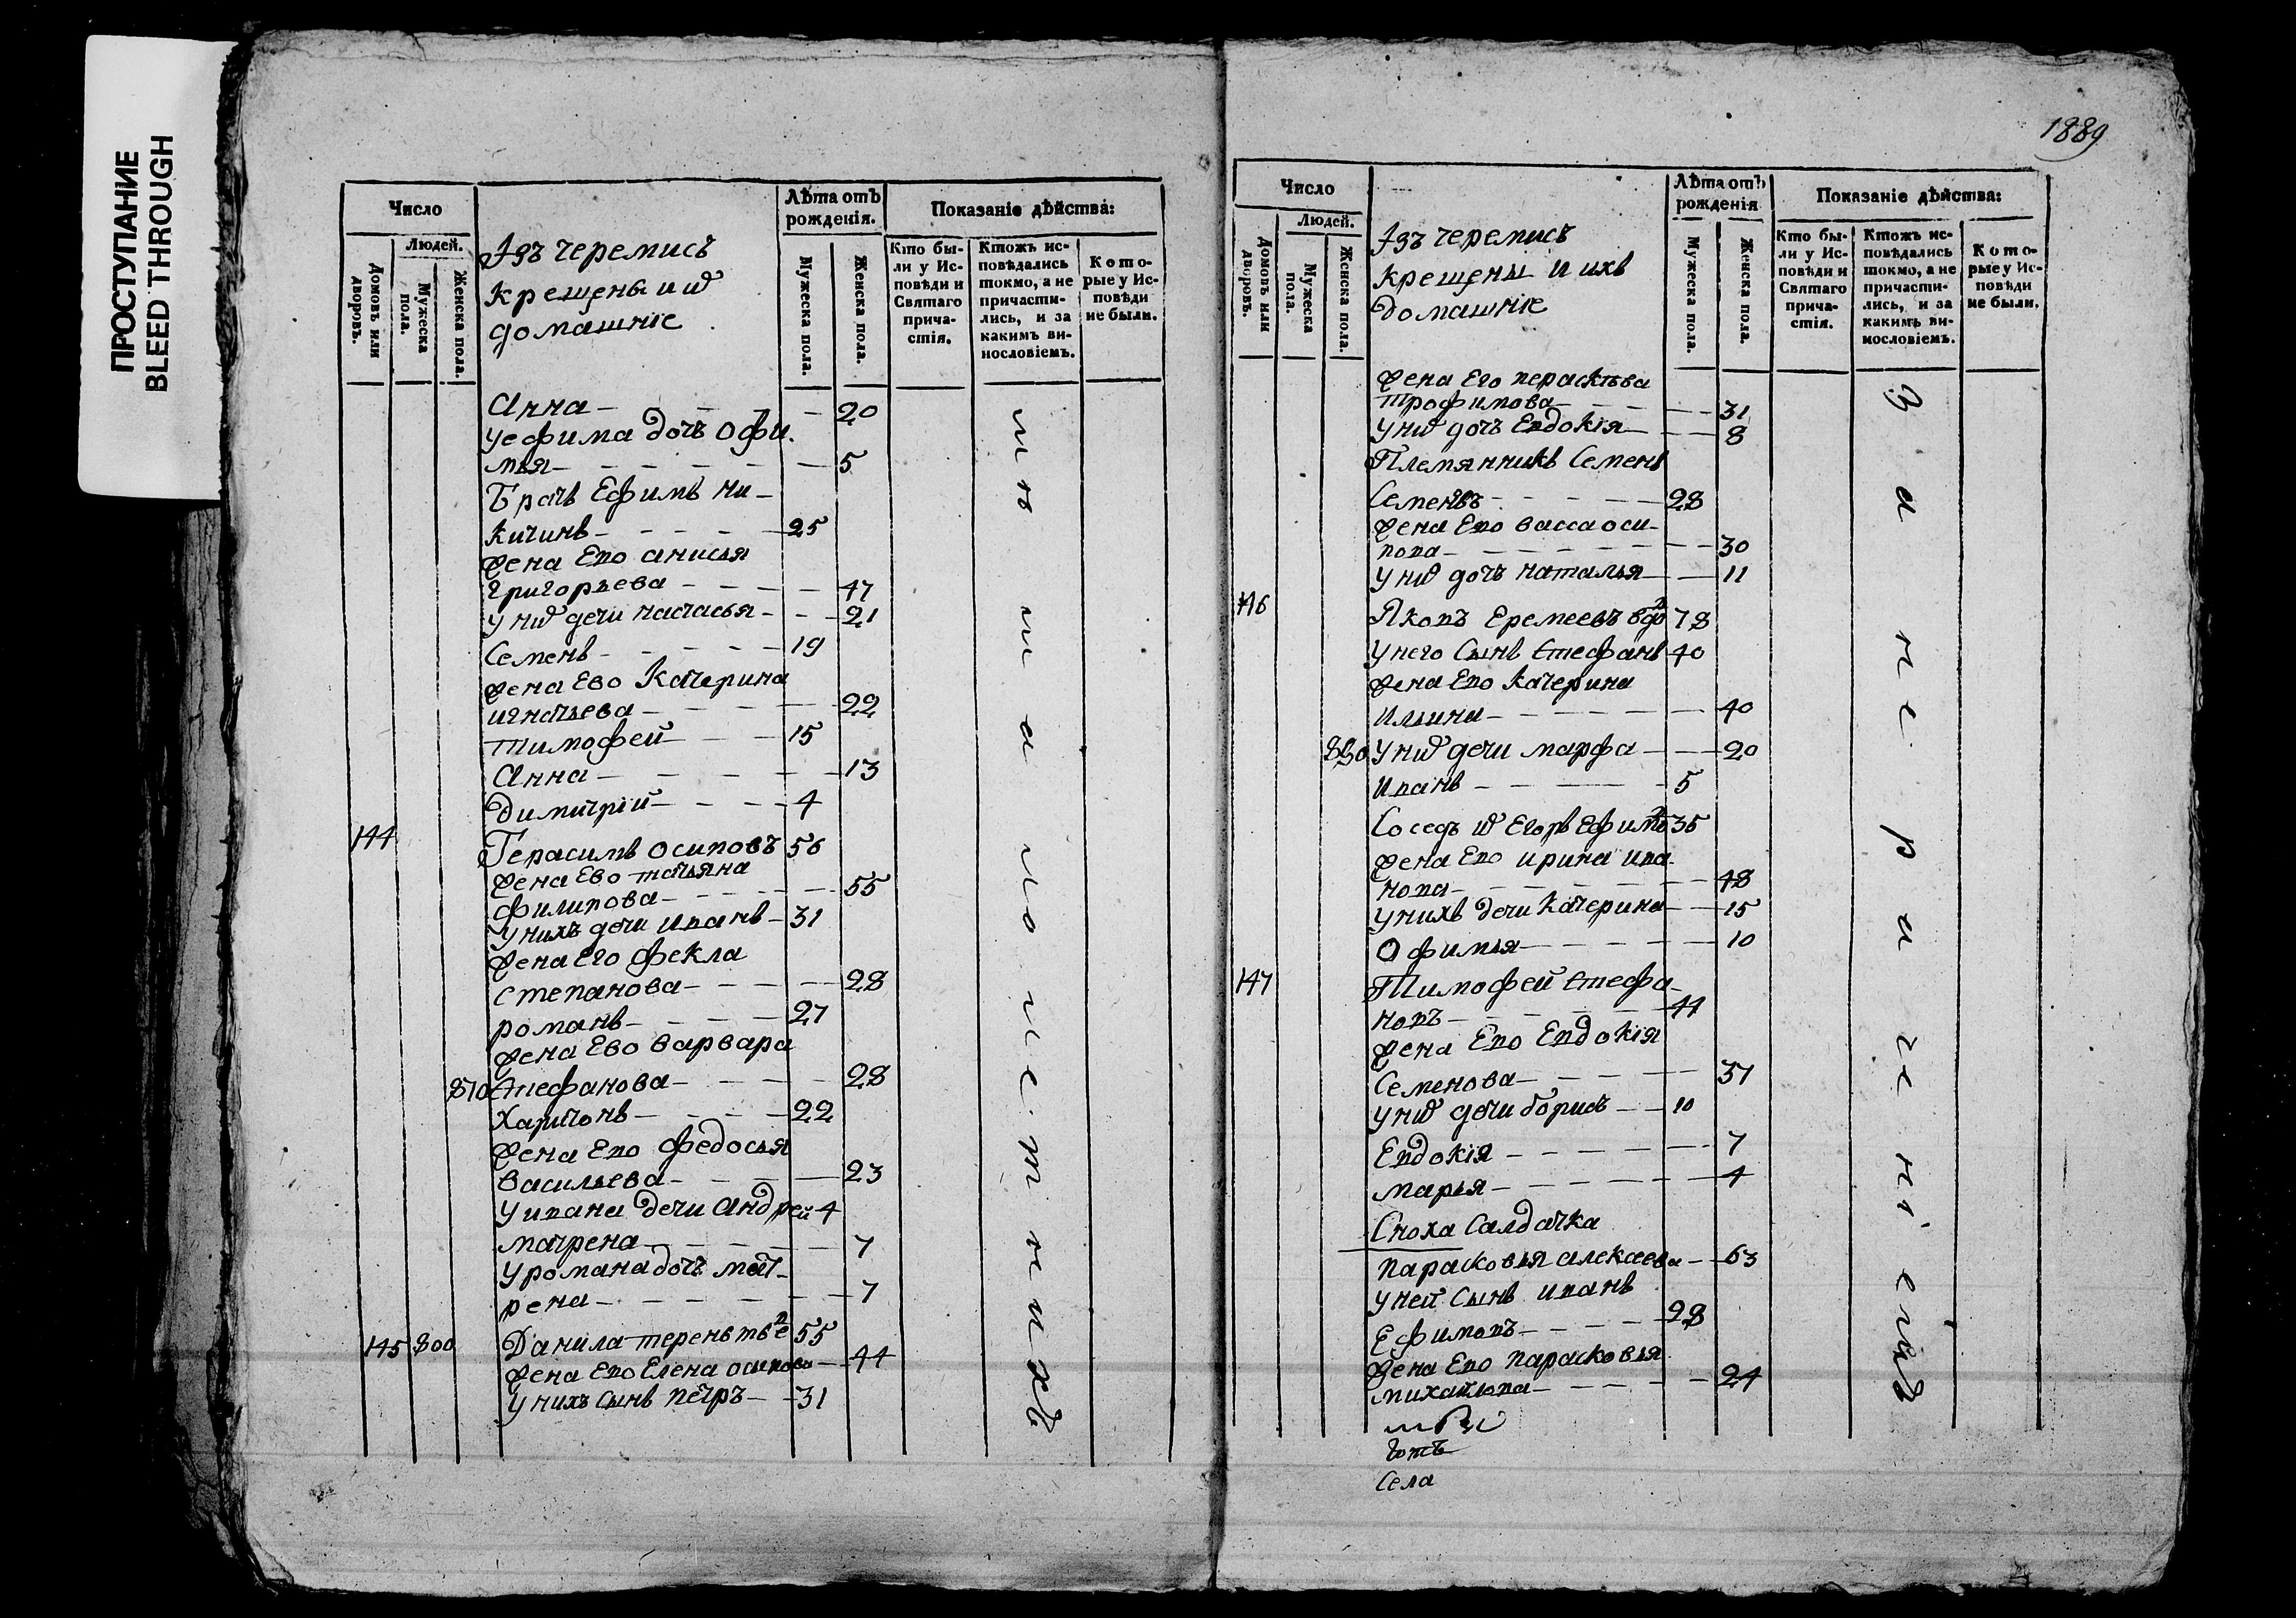 ПРОСТУПАНИЕ
BLEED THROUGH
Число
Людей.
Домовъ или дворовъ.
Мужеска пола.
Женска пола.
Изъ черемисъ
крещены и
домашніе
Лѣта отъ
рожденія.
Мужеска пола.
Женска пола.
Показаніе дѣйства:
Кто бы-
ли у Ис-
повѣди и
Святаго
прича-
стія.
Ктожъ ис-
повѣдались
токмо, а не
причасти-
лись, и за
какимъ ви-
нословіемъ.
Кото-
рые у Ис-
повѣди
не были.
Анна 20
у ефима дочь офи-
мья 5
Братъ Ефимъ ни-
китинъ 25
жена Ево анисья
григорьева 47
у них дети настасья 21
Семенъ 19
жена Ево Катерина
игнатьева 22
тимофей 15
Анна 13
димитрій 4
144 Герасимъ осиповъ 56
жена Ево татьяна
филипова 55
у нихъ дети иванъ 31
жена Его фекла
степанова 28
романъ 27
жена Ево варвара
870 стефанова 28
харитонъ 22
жена Ево федосья
васильева 23
у ивана дети андрей 4
матрена 7
у романа дочь мат-
рена 7
145 800 Данила терентьев 55
жена Ево Елена осипова 44
у нихъ сынъ петръ 31
1889
Число
Людей.
Домовъ или дворовъ.
Мужеска пола.
Женска пола.
Изъ черемисъ
крещены и ихъ
домашніе
Лѣта отъ
рожденія
Мужеска пола.
Женска пола.
Показаніе дѣйства:
Кто бы-
ли у Ис-
повѣди и
Святаго
прича-
стія.
Ктожъ ис-
повѣдались
токмо, а не
причасти-
лись, и за
какимъ ви-
нословіемъ.
Кото-
рые у Ис-
повѣди
не были.
жена Его
трофимова 31
у них дочь Евдокія 8
Племянникъ Семенъ
Семеновъ 28
жена Ево васса оси-
пова 30
у них дочь наталья 11
146 Яковъ Еремеевъ вдов 78
у него сынъ стефанъ 40
жена Ево катерина
Ильина 40
880 у них дети марфа 20
Иванъ 5
Сосед их Егоръ Ефимов 35
жена Ево ирина ива-
нова 48
у нихъ дети катерина 15
Офимья 10
147 Тимофей стефа-
новъ 44
жена Ево Евдокія
Семенова 37
у них дети борисъ 10
Евдокія 7
марья 4
Сноха салдатка
парасковья алексеева 63
у ней сынъ иванъ
Ефимовъ 28
жена Ево парасковья
михайлова 24
Села
За нераченіемъ